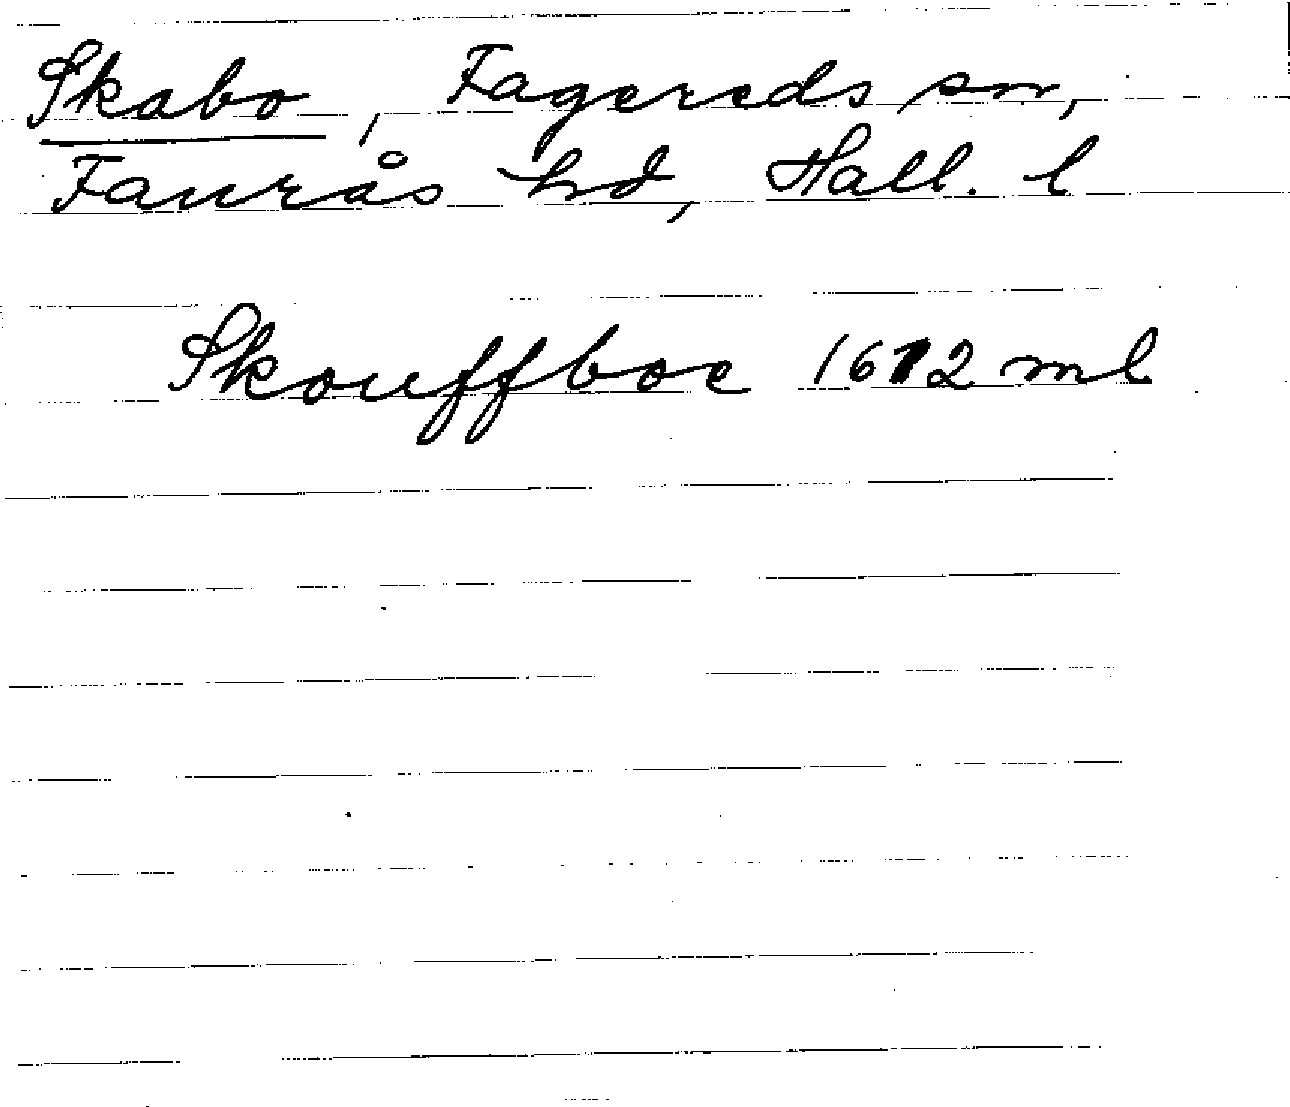 Skabo, Fagereds sn,
Faurås hd, Hall. l
Skouffboe 1612 ml